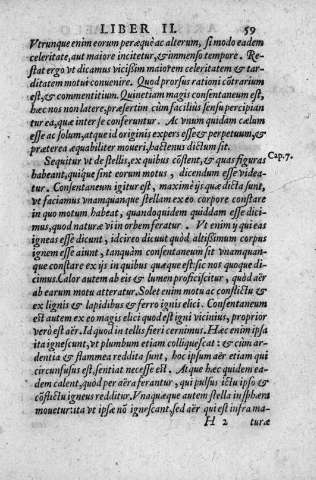 LIBER II. 59
Vtrunque enim eorum peræquè ac alterum, si modo eadem
celeritate, aut maiore incitetur, & immenso tempore. Re-
stat ergo vt dicamus vicissim maiorem celeritatem & tar-
ditatem motui conuenire. Quod prorsus rationi cōtrarium
est, & commentitium. Quinetiam magis consentaneum est,
hæc nos non latere, præsertim cùm faciliùs sensu percipian
tur ea, quæ inter se conseruntur. Ac vnum quidam cælum
esse ac solum, atque id originis expers esse & perpetuum, &
præterea æquabiliter moueri, hactenus dictum sit.
Sequitur vt de stellis, ex quibus cōstent, & quas figuras
Cap. 7.
habeant, quique sint eorum motus, dicendum esse videa-
tur. Consentaneum igitur est, maximè ijs quæ dicta sunt,
vt faciamus vnamquanque stellam ex eo corpore constare
in quo motum habeat, quandoquidem quiddam esse dici-
mus, quod naturæ vi in orbem feratur. Vt enim y qui eas
igneas esse dicunt, idcirco dicunt quòd altissimum corpus
ignem esse aiunt, tanquàm consentaneum sit vnamquan-
que constare ex ijs in quibus quæque est: sic nos quoque di-
cimus. Calor autem ab eis & lumen proficiscitur, quòd aër
ab earum motu atteratur. Solet enim motu ac conflictu &
ex lignis & lapidibus & ferro ignis elici. Consentaneum
est autem ex eo magis elici quod est igni vicinius, proprior
verò est aër. Id quod in tellis fieri cernimus. Hæc enim ipsa
ita ignescunt, vt plumbum etiam colliquescat: & cùm ar-
dentia & flammea reddita sunt, hoc ipsum aër etiam qui
circunfusus est, sentiat necesse est. Atque hæc quidem ea-
dem calent, quòd per aëra ferantur, qui pulsus ictu ipso &
cōflictu igneus redditur. Vnaquæque autem stella in sphæra
mouetur: ita vt ipsæ nō ignescant, sed aër qui est infra ma-
H 2 turæ